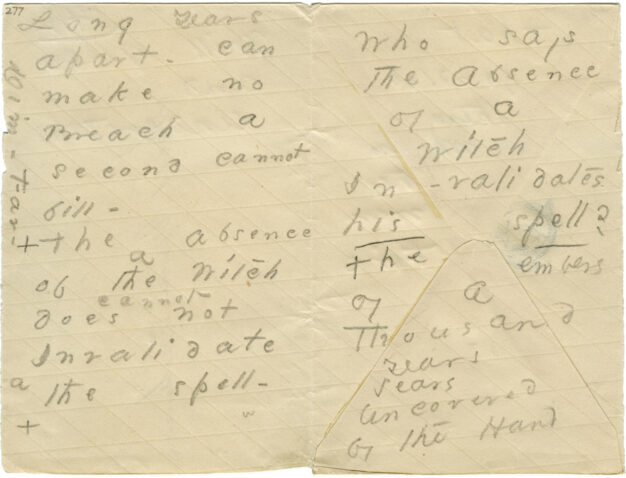 277
Long Years
apart - can
make no
Breach a
second cannot
fill -
+ the absence
a
of the Witch
cannot
does not
Invalidate
a the spell -
+
Who says
The Absence
of a
Witch
In -validates
his spell?
the embers
of a
Thousand
Years
Years
Uncovered
by the Hand